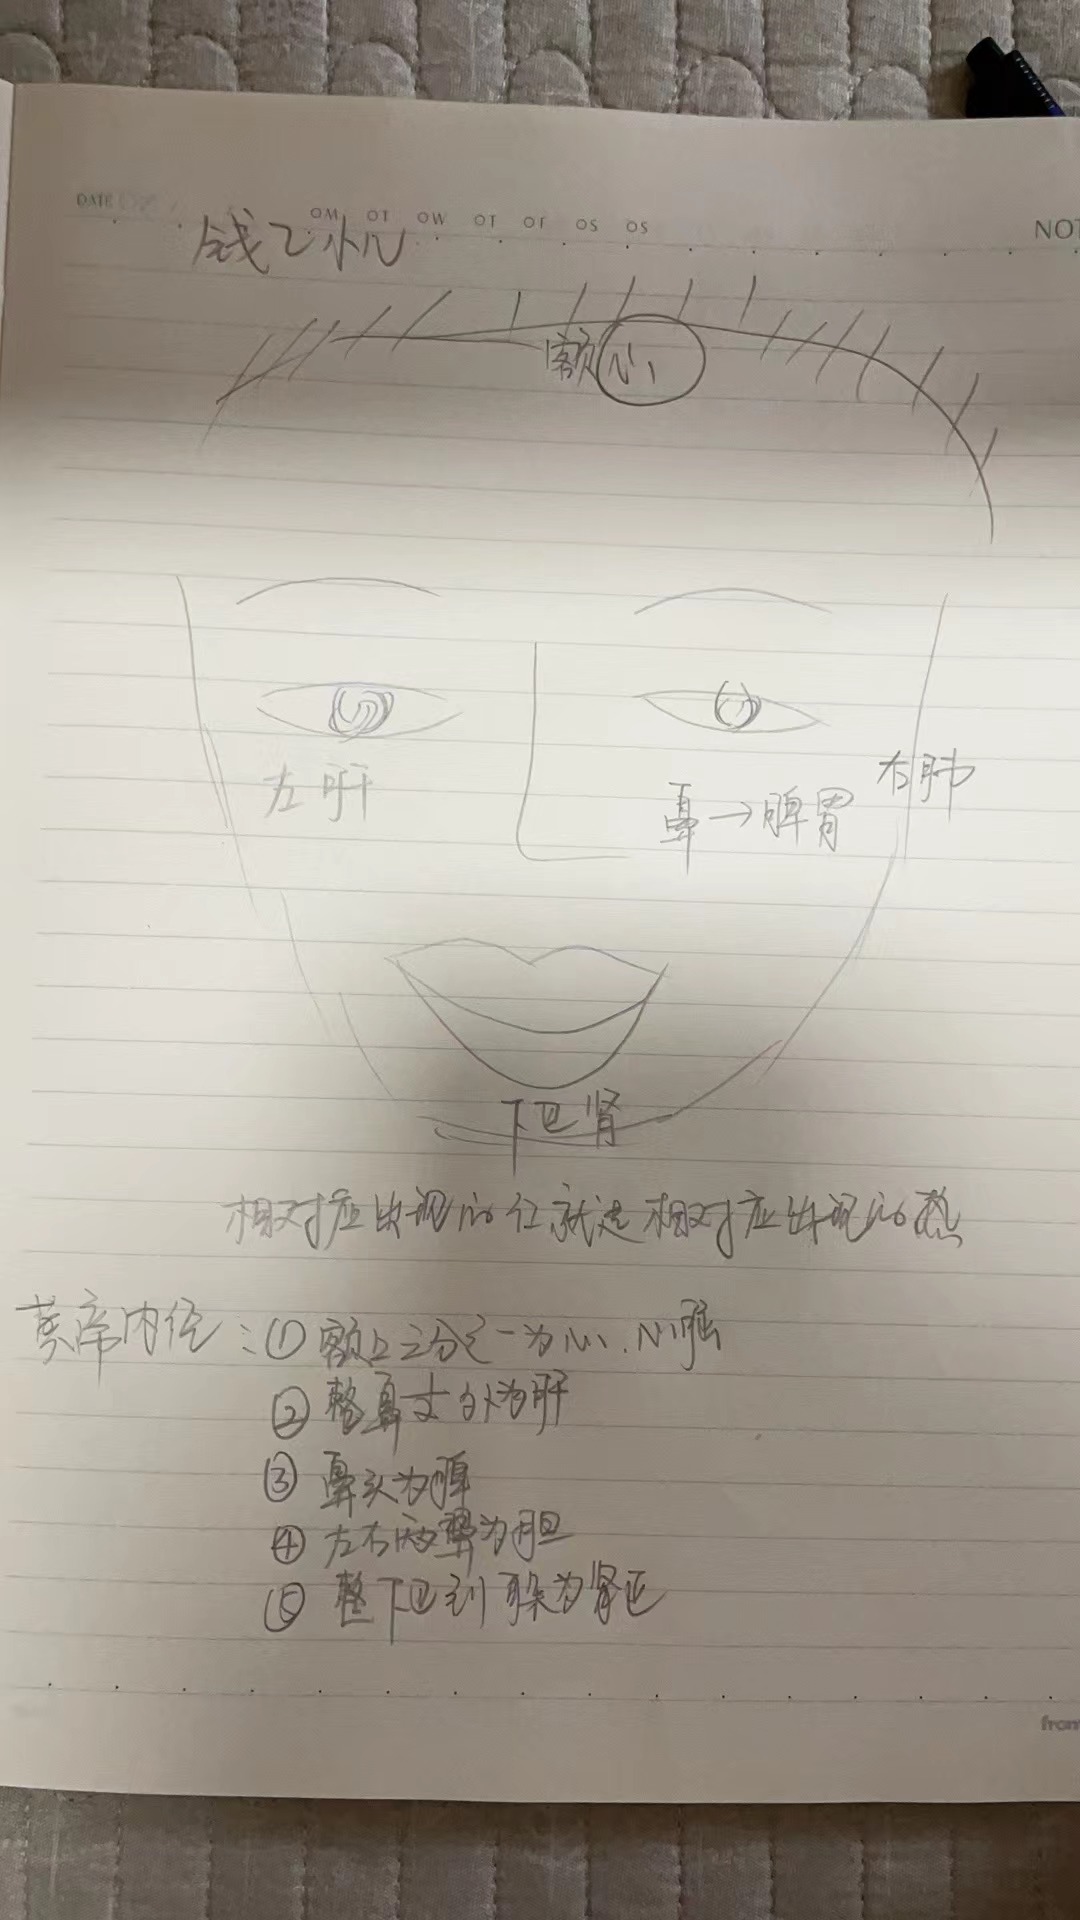 DATE
OM OT OW OT OF OS OS
NOT
钱乙
额心
左肝
右肺
鼻→脾胃
下巴肾
相对应出现的红就是相对应出现的热
黄帝内经：①额上三分之一为心、心脏
②整鼻 外为肝
③鼻头为脾
④左右两翼为胆
⑤整下巴到耳朵为肾
from